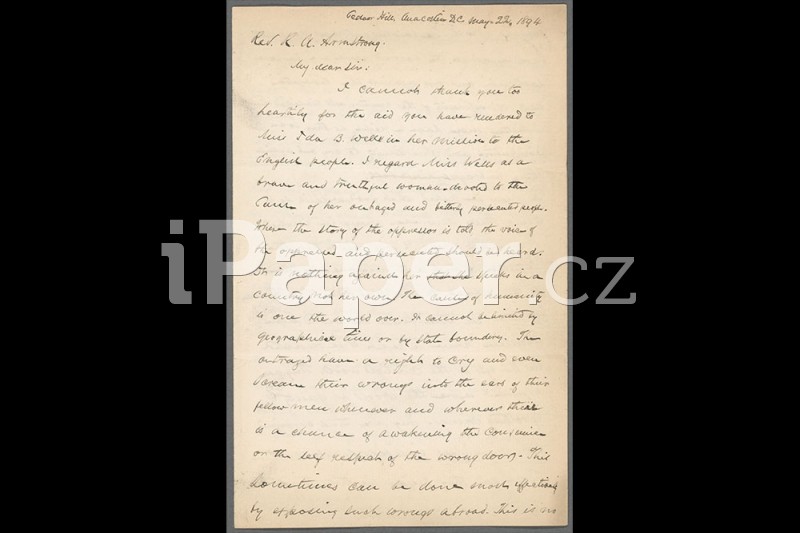 Cedar Hill, Anacostia D.C. May 22, 1894.
Rev. R. A. Armstrong.
My dear Sir:
I cannot thank you too
heartily for the aid you have rendered to
Miss Ida B. Wells in her mission to the
English people. I regard Miss Wells as a
brave and truthful woman devoted to the
Cause of her outraged and bitterly persecuted people.
Where the story of the oppressor is told the voice of
the oppressed and persecuted should be heard.
It is nothing against her that she speaks in a
country not her own. The cause of humanity
is one the world over. It cannot be limited by
geographical lines or by state boundary. The
outraged have a right to cry and even
scream their wrongs into the ears of their
fellow men whenever and wherever there
is a chance of awakening the conscience
or the self respect of the wrong doers. This
sometimes can be done most effectively
by exposing such wrongs abroad. This is no
iPaper.cz